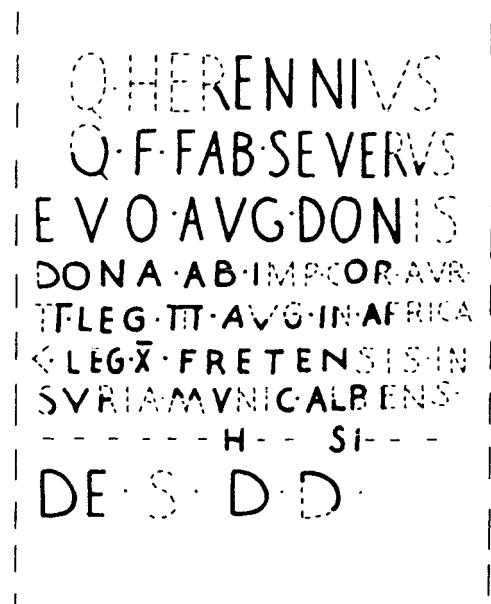 Q·HERENNIVS
Q·F·FAB·SEVERVS
EVO·AVG·DONIS
DONA·AB·IMP·COR·AVR·
LEG·III·AVG·IN·AFRICA
LEG·X̅·FRETENSIS·IN
SVRIA·MVNIC·ALBENS·
H SI
DE·S·D·D·